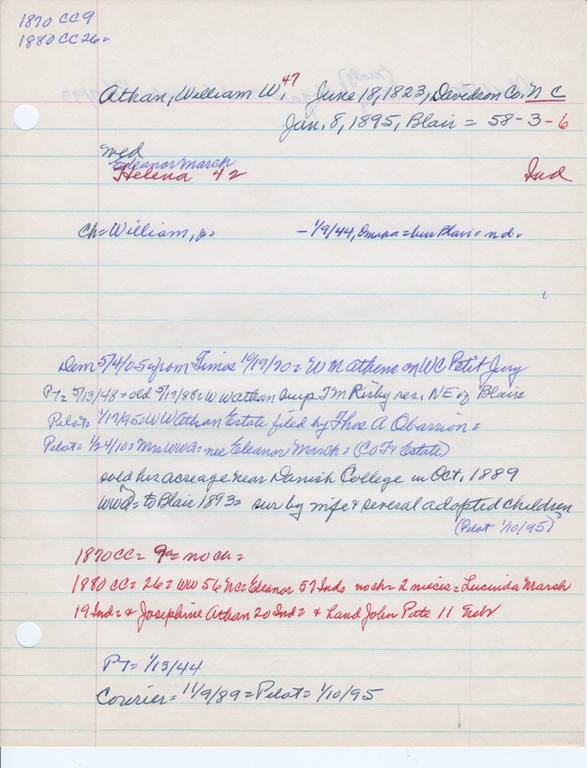 1870 CC9
1880 CC26=
Athan, William W, 47 June 18, 1823, Davidson Co, N C
Jan. 8, 1895, Blair = 58-3-6
wed
Eleanor March
Helena 42 Ind
Ch= William, jr - 1/9/44, Omaha= bur Blair= n.d.
Dem 5/4/05= from Times 10/19/70= W N Athens on WC Petit Jury
PT= 5/13/48= old 5/17/88= W W Athan T M Risby res, NE of Blair
Pilot= 1/17/95= W W Athan Estate filed by Thos A
Pilot= 1/24/10= Mrs WWA= nee Eleanor March= (Co Estate)
sold his acreage near Danish College in Oct, 1889
WWA= to Blair 1893= sur by wife & several adopted children
(Pilot 1/10/95)
1870 CC= 9= no ch=
1880 CC= 26= WW 56 NC= Eleanor 57 Ind= no ch= 2 nieces= Lucinda March
19 Ind= & Josephine Athan 20 Ind= & Hand John Pate 11 Nebr
PT= 1/13/44
Courier= 11/9/89= Pilot= 1/10/95